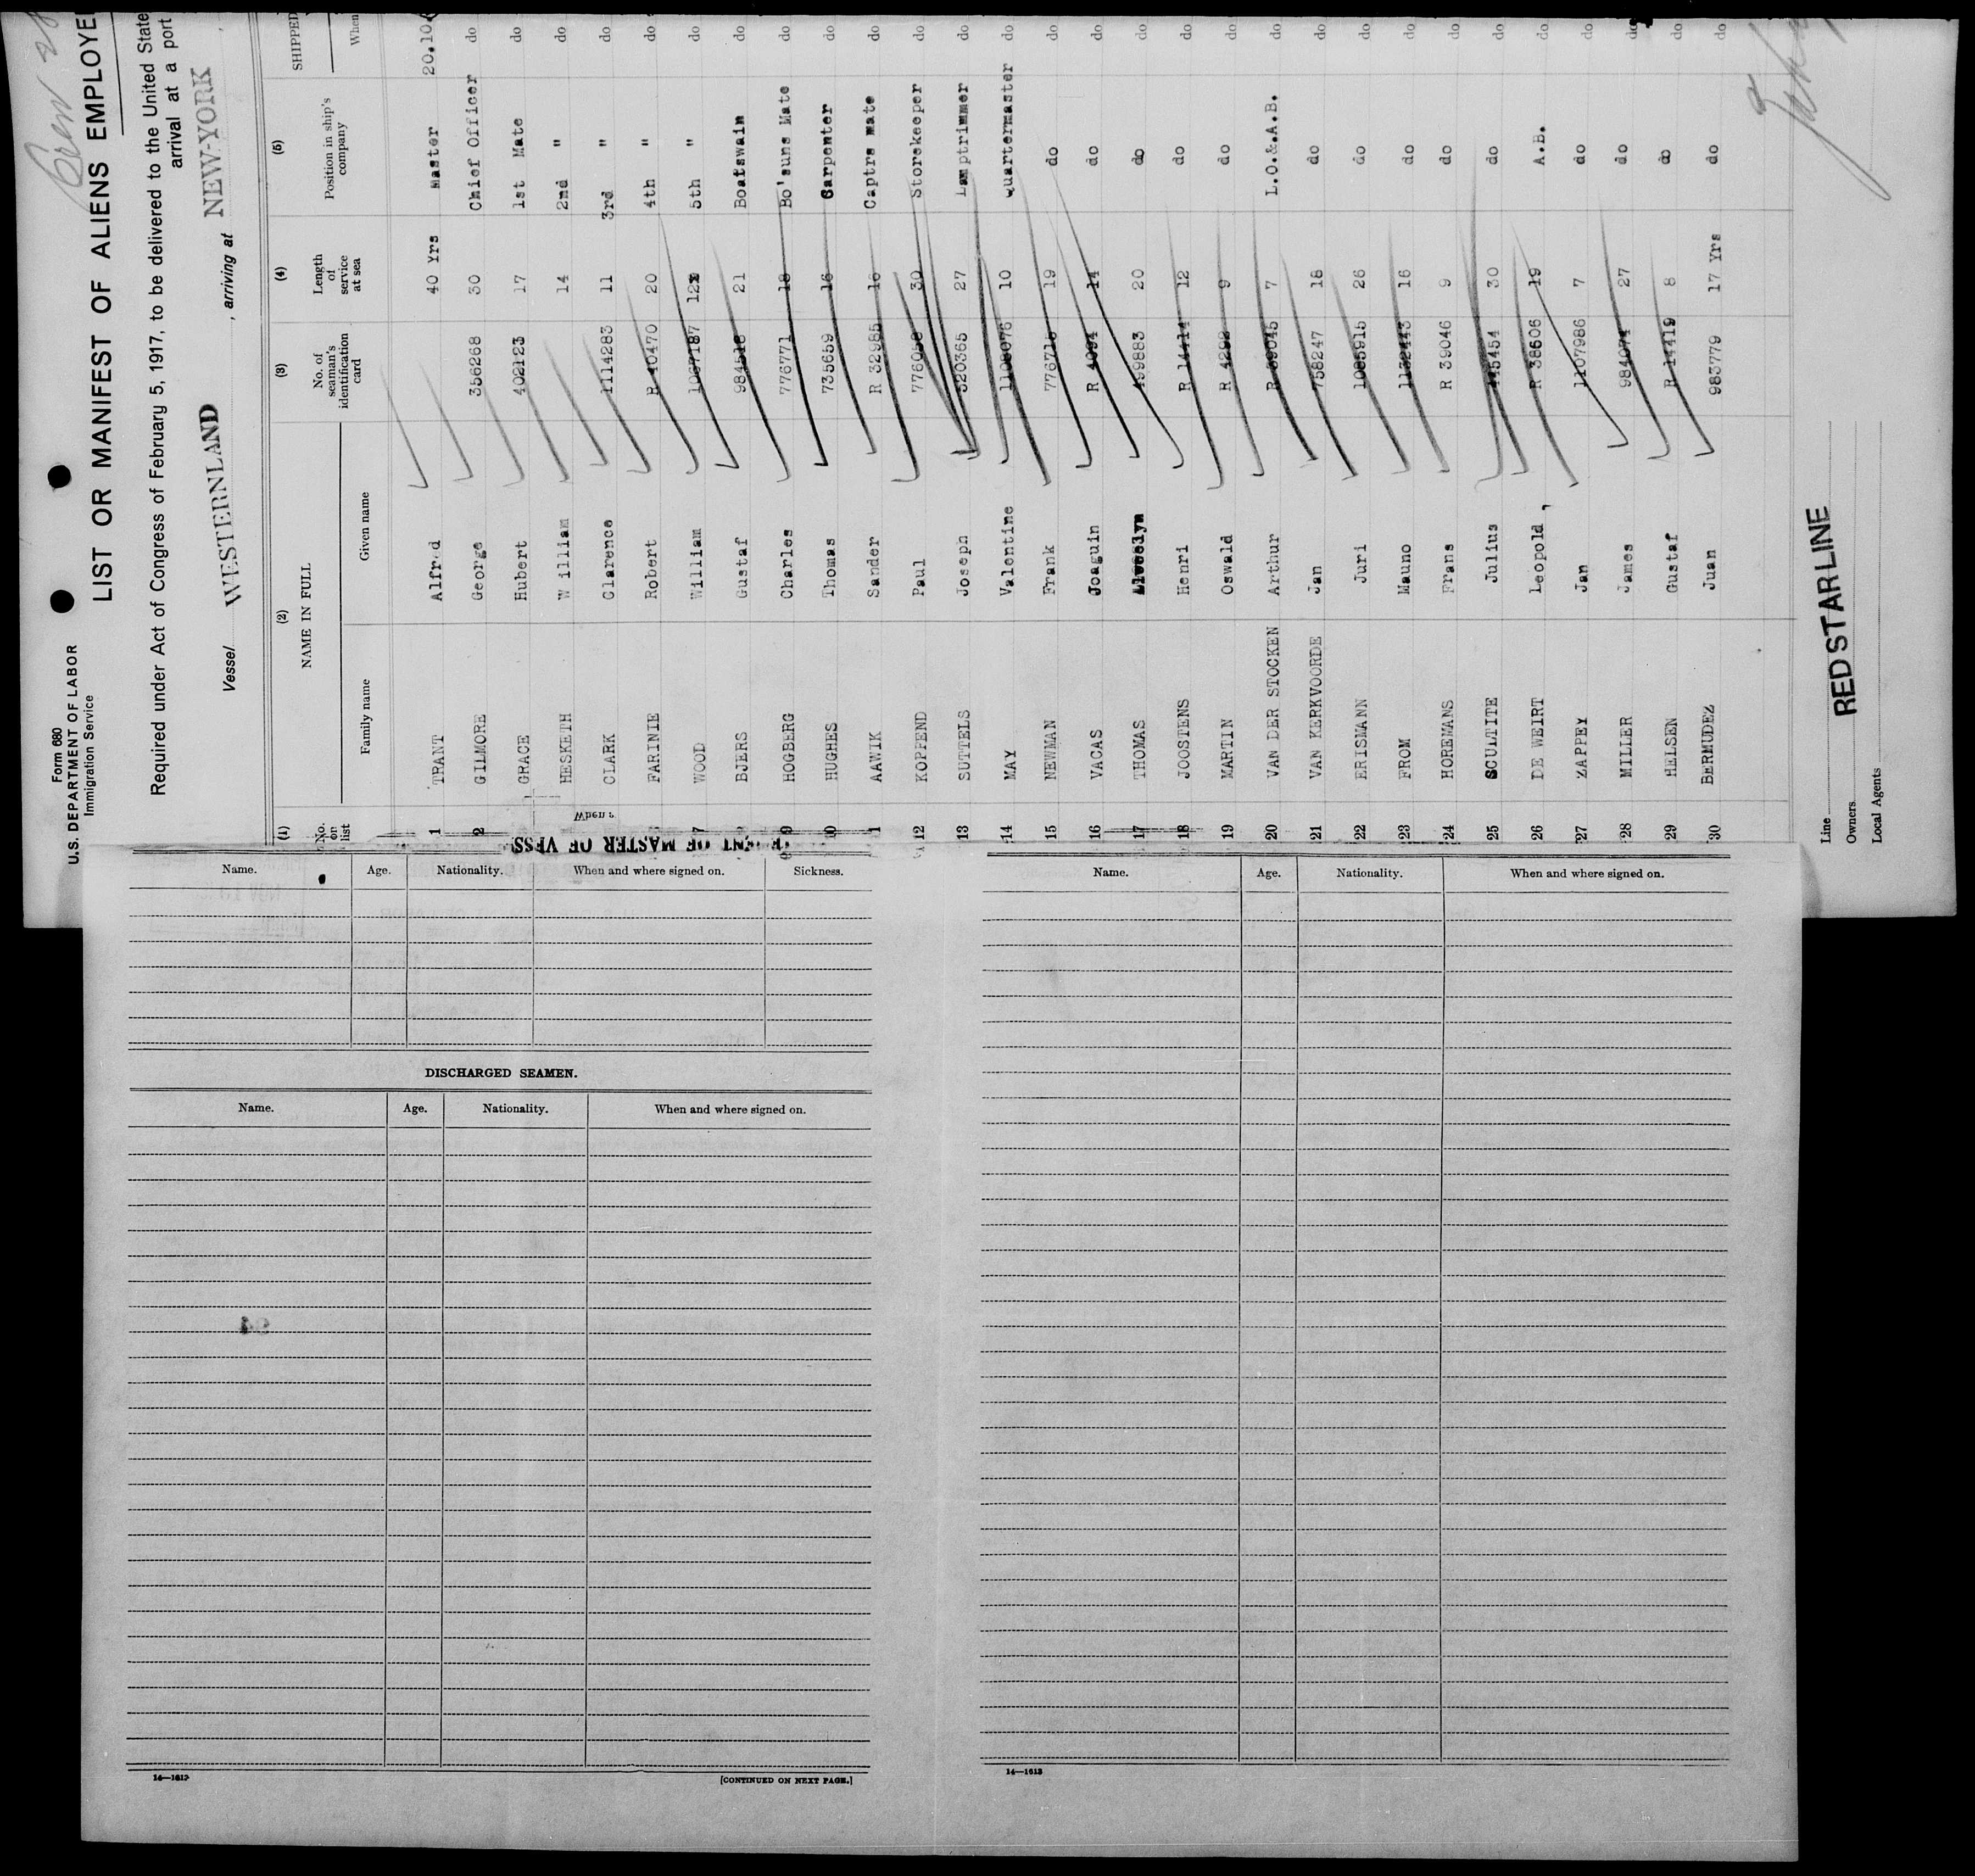 Form 680
U.S. DEPARTMENT OF LABOR
Immigration Service
LIST OR MANIFEST OF ALIENS EMPLOYE
Required under Act of Congress of February 5, 1917, to be delivered to the United State
arrival at a port
Vessel WESTERNLAND, arriving at NEW-YORK
(1) (2) (3) (4) (5)
No. on list NAME IN FULL No. of seaman's identification card Length of service at sea Position in ship's company SHIPPED
Family name Given name When
1 TRANT Alfred 40 Yrs Master 20.10
2 GILMORE George 356268 30 Chief Officer do
GRACE Hubert 402123 17 1st Mate do
HESKETH W illiam 14 2nd " do
CLARK Clarence 1114283 11 3rd " do
FARINIE Robert R 40470 20 4th " do
7 WOOD William 1067187 12 5th " do
BJERS Gustaf 984518 21 Boatswain do
9 HOGBERG Charles 776771 18 Bo'suns Mate do
10 HUGHES Thomas 735659 16 Carpenter do
1 AAWIK Sander R 32985 16 Captrs mate do
12 KOPPEND Paul 776058 30 Storekeeper do
13 SUTTELS Joseph 520365 27 Lamptrimmer do
14 MAY Valentine 1108076 10 Quartermaster do
15 NEWMAN Frank 776715 19 do do
16 VACAS Joaguin R 4094 14 do do
17 THOMAS 499883 20 do do
18 JOOSTENS Henri R 14414 12 do do
19 MARTIN Oswald R 4292 9 do do
20 VAN DER STOCKEN Arthur R 39045 7 L.O.&.A.B. do
21 VAN KERKVOORDE Jan 758247 18 do do
22 ERISMANN Juri 1085915 26 do do
23 FROM Mauno 1132443 16 do do
24 HOREMANS Frans R 39046 9 do do
25 SCULTITE Julius 445454 30 do do
26 DE WEIRT Leopold , R 38606 19 A.B. do
27 ZAPPEY Jan 1107986 7 do do
28 MILLER James 984074 27 do do
29 HELSEN Gustaf R 14419 8 do do
30 BERMUDEZ Juan 983779 17 Yrs do do
Line RED STAR LINE
Owners
Local Agents
OF MASTER OF VESS
Name. Age. Nationality. When and where signed on. Sickness.
DISCHARGED SEAMEN.
Name. Age. Nationality. When and where signed on.
14—1613
[CONTINUED ON NEXT PAGE.]
Name. Age. Nationality. When and where signed on.
14—1613